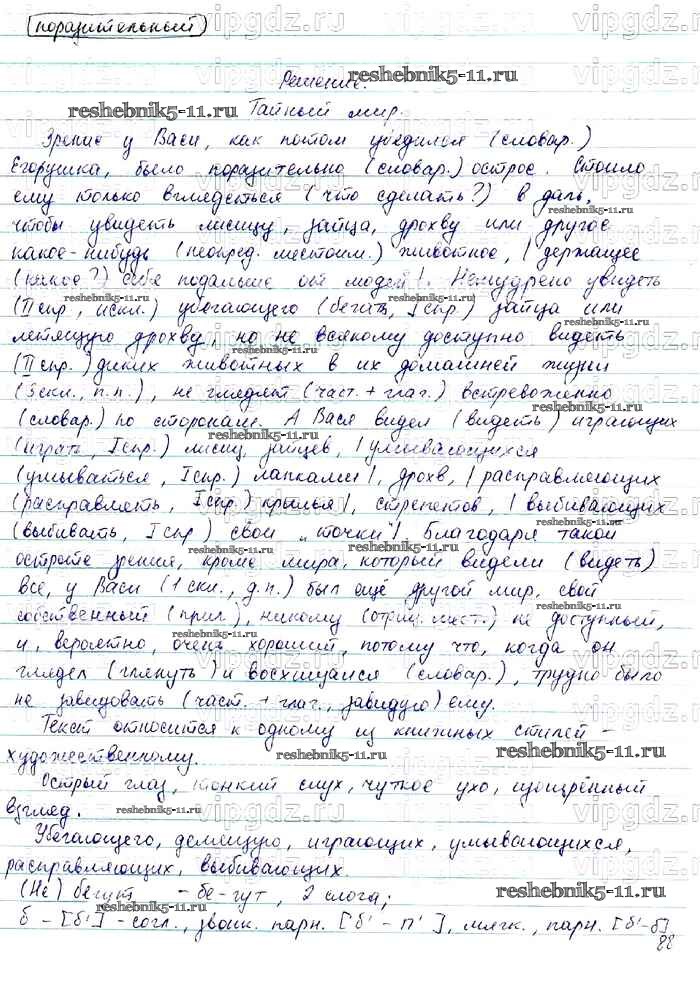 поразительный
Решение.
Тайный мир.
Зрение у Васи, как потом убедился (словар.)
Егорушка, было поразительно (словар.) острое. Стоило
ему только вглядеться (что сделать?) в даль,
чтобы увидеть лисицу, зайца, дрохву или другое
какое-нибудь (неопред. местоим.) животное, | держащее
(какое?) себя подальше от людей |. Немудрено увидеть
(II спр., искл.) убегающего (бегать, I спр.) зайца или
летящую дрохву, но не всякому доступно видеть
(II спр.) диких животных в их домашней жизни
(3 скл., п.п.), не глядят (част. + глаг.) встревоженно
(словар.) по сторонам. А Вася видел (видеть) играющих
(играть, I спр.) лисиц, зайцев, | умывающихся
(умываться, I спр.) лапками |, дрохв, | расправляющих
(расправлять, I спр.) крылья |, стрепетов, | выбивающих
(выбивать, I спр) свои „точки" |. Благодаря такой
остроте зрения, кроме мира, который видели (видеть)
все, у Васи (1 скл., д.п.) был ещё другой мир, свой
собственный (прил.), никому (отриц. мест.) не доступный,
и, вероятно, очень хороший, потому что, когда он
глядел (глянуть) и восхищался (словар.), трудно было
не завидовать (част. + глаг., завидую) ему.
Текст относится к одному из книжных стилей –
художественному.
Острый глаз, тонкий слух, чуткое ухо, изощрённый
взгляд.
Убегающего, летящую, играющих, умывающихся,
расправляющих, выбивающих.
(Не) бегут – бе-гут, 2 слога;
б – [б'] – согл., звонк. парн. [б' – п'], мягк., парн. [б'-б]
88
vipgdz.ru
reshebnik5-11.ru